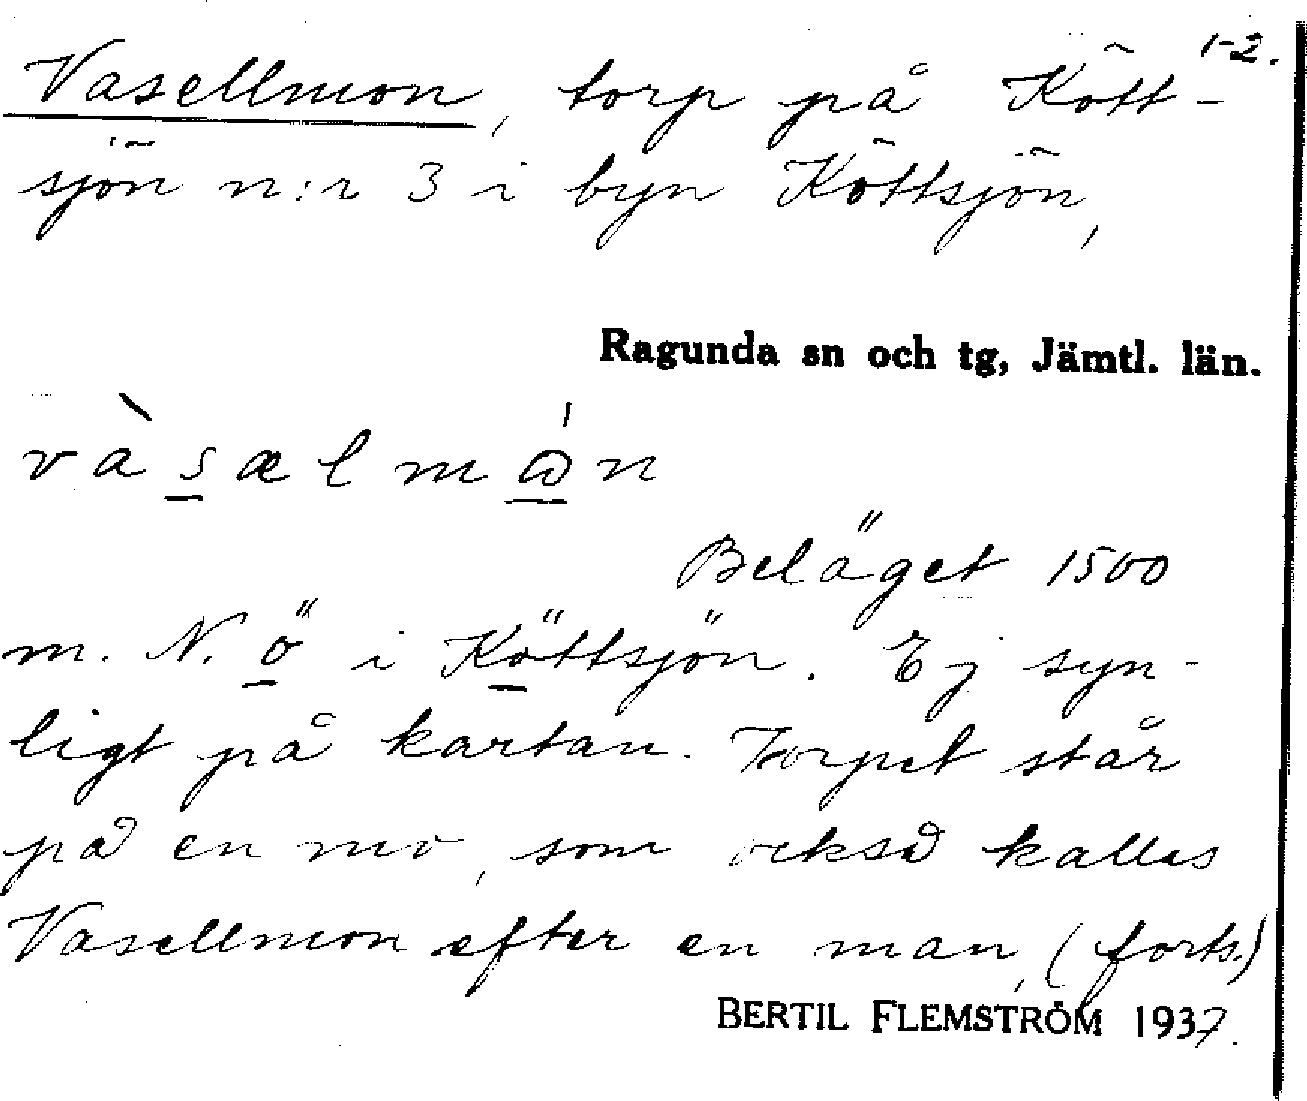 1-2.
Vasellmon, torp på Kött-
sjön n:r 3 i byn Köttsjön,
Ragunda sn och tg, Jämtl. län.
và s æ l m ώ n
Beläget 1500
m. N. ö i Köttsjön. Ej syn-
ligt på kartan. Torpet står
på en mo, som också kallas
Vasellmon efter en man, (forts.)
BERTIL FLEMSTRÖM 1937.